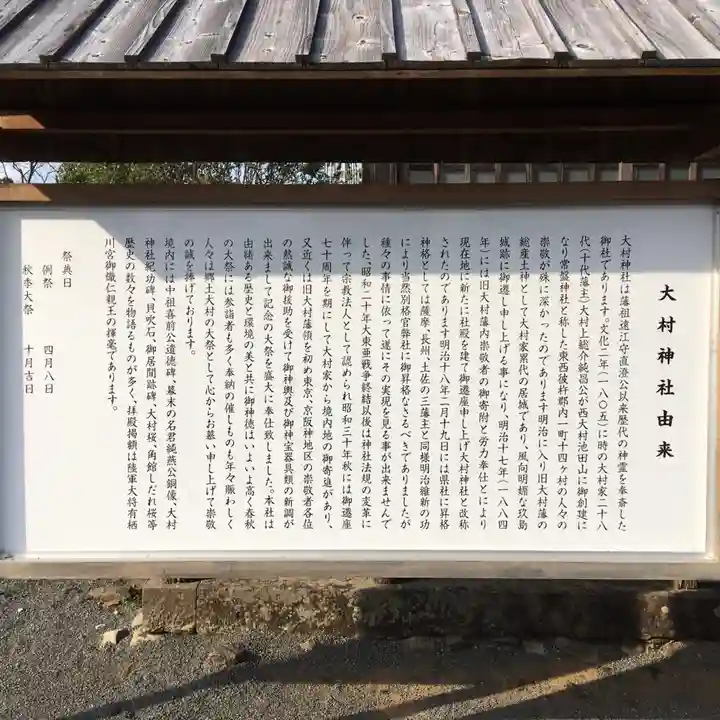 大村神社由来
大村神社は藩祖遠江守直澄公以来歴代の神霊を奉斎した
御社であります。文化二年(一八〇五)に時の大村家二十八
代(十代藩主)大村上総介純昌公が西大村池田山に御創建に
なり常盤神社と称した東西彼杵郡内一町十四ヶ村の人々の
崇敬が殊に深かったのであります明治に入り旧大村藩の
総産土神として大村家累代の居城であり、風向明媚な玖島
城跡に御遷し申し上げる事になり、明治十七年(一八八四
年)には旧大村藩内崇敬者の御寄附と労力奉仕とにより
現在地に新たに社殿を建て御遷座申し上げ大村神社と改称
されたのであります明治十八年二月十九日には県社に昇格
神格としては薩摩、長州、土佐の三藩主と同様明治維新の功
により当然別格官弊社に御昇格なさるべきでありましたが
種々の事情に依って遂にその実現を見る事が出来ませんで
した、昭和二十年大東亜戦争終結以後は神社法規の変革に
伴って宗教法人として認められ昭和三十年秋には御遷座
七十周年を期にして大村家から境内地の御寄進があり、
又近くは旧大村藩領を初め東京、京阪神地区の崇敬者各位
の熱誠な御援助を受けて御神輿及び御神宝器具類の新調が
出来まして記念の大祭を盛大に奉仕致しました。本社は
由緒ある歴史と環境の美と共に御神徳はいよいよ高く春秋
の大祭には参詣者も多く奉納の催しものも年々賑わしく
人々は郷土大村の大祭として心からお慕い申し上げて崇敬
の誠を捧げております。
境内には中祖喜前公遺徳碑、幕末の名君純燕公銅像、大村
神社紀功碑、貝吹石、御居間跡碑、大村桜、角館しだれ桜等
歴史の数々を物語るものが多く、拝殿掲額は陸軍大将有栖
川宮御熾仁親王の揮毫であります。
祭典日
例祭 四月八日
秋季大祭 十月吉日